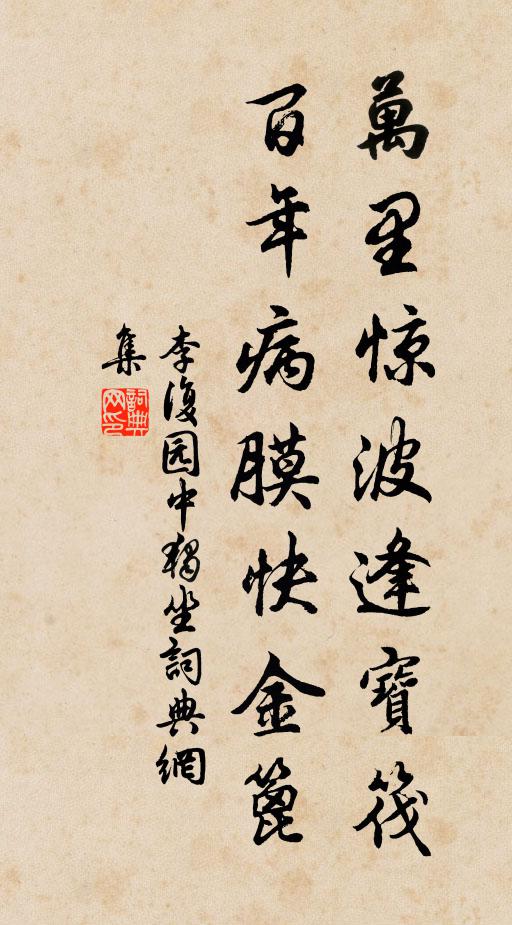 萬里惊波逢寶筏
百年病膜快金篦
李復园中獨坐詞典網
集
詞典网印